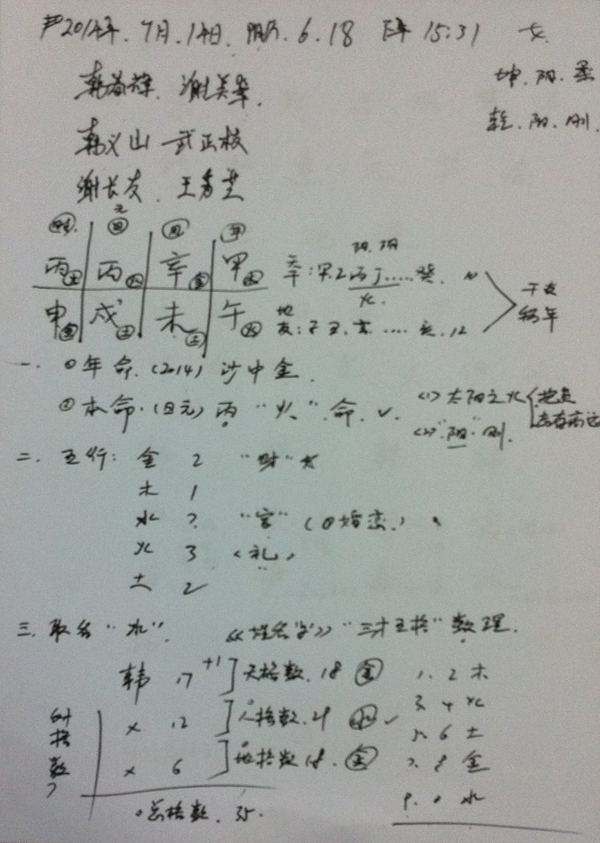 2014年.7月.14日.阴历.6.18 下午15:31 女
坤.阴.柔
韩 谢美华.
乾.阳.刚.
韩义山 武正枝
谢长友.王
时 日元 月 年
丙火 丙火 辛金 甲木
申金 戌土 未土 午火
阴.阳
天干:甲乙丙丁.....癸. 10
火
地支:子丑.寅.....亥.12
干支纪年
一. ①年命.(2014)沙中金.
②本命.(日元)丙“火”命.✓.
(1)太阳之火
(2)“阳”刚.
志存高远
二.五行: 金 2 “财”
木 1
水 ? “官”(婚恋.)
火 3 (礼)
土 2
三.取名“水”. 《姓名学》“三才五格”数理.
韩 17 +1 天格数.18 金
x 12 人格数.29 水 ✓
x 6 地格数18.金
外格数7
总格数.35.
1.2木
3.4火
5.6土
7.8金
9.0水